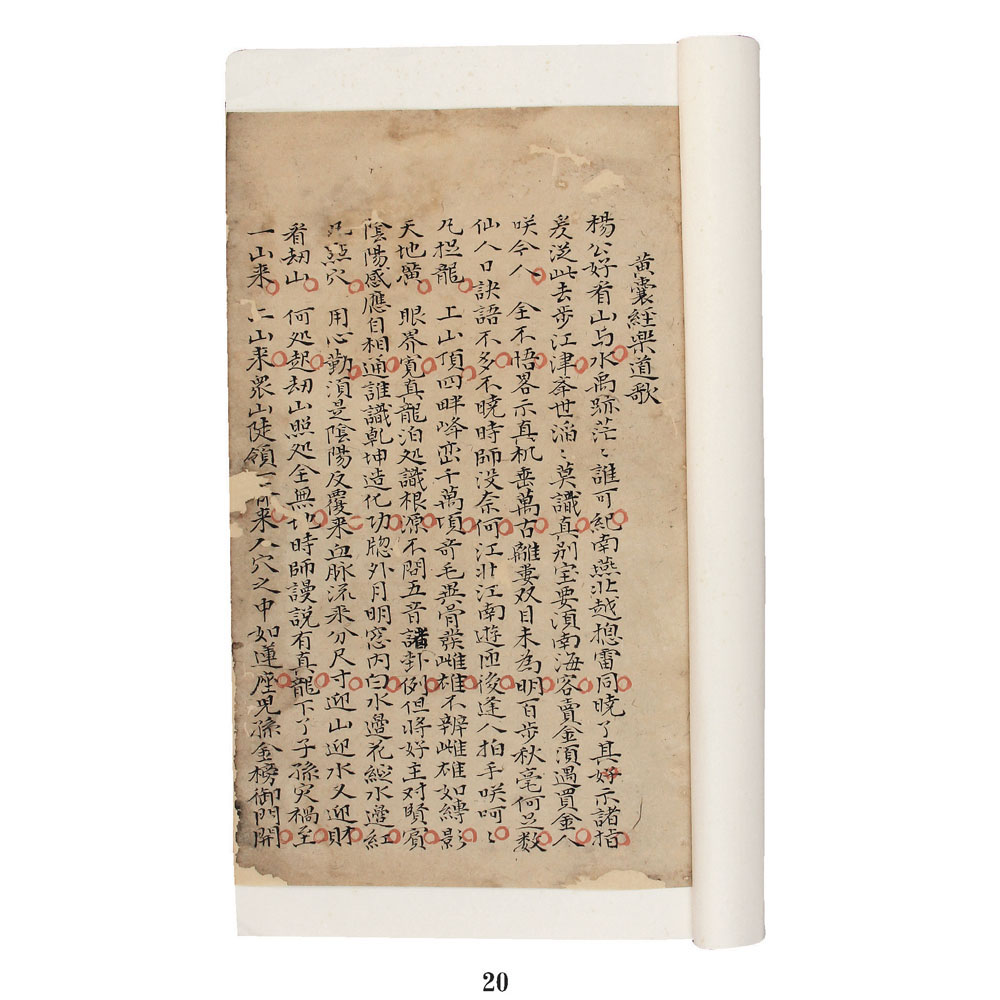 黄囊経樂道歌
楊公好看山与水禹跡茫〻誰可紀南燕北越揔雷同曉了其好示諸指
爰从此去步江津举世滔〻莫識真别宝要須南海客賣金須遇買金人
咲今人全不悟畧示真机垂萬古離婁双目未為明百步秋毫何足数
仙人口訣語不多不曉時師没奈何江北江南遊匝後逢人拍手咲呵〻
凡捉龍上山頂四畔峰峦千萬項奇毛異骨發雌雄不辨雌雄如縛影
天地廣眼界寛真龍泊処識根源不問五音諸卦例但將好主对賢賓
陰陽感應自相通誰識乾坤造化功牕外月明窓内白水邊花綻水邊紅
凡點穴用心勤須是陰陽反覆来血脉流乘分尺寸迎山迎水又迎財
看刼山何処起刼山照処全無地時師謾説有真龍下了子孫灾禍至
一山来二山来衆山陡領一齐来入穴之中如蓮座兒孫金榜御門開
20